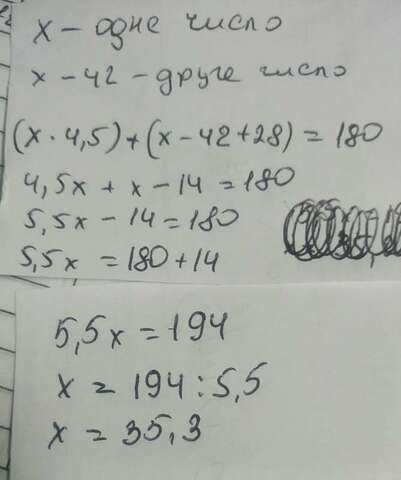 x – одне число
x – 42 – друге число
(x · 4,5) + (x – 42 + 28) = 180
4,5x + x – 14 = 180
5,5x – 14 = 180
5,5x = 180 + 14
5,5x = 194
x = 194 : 5,5
x = 35,3